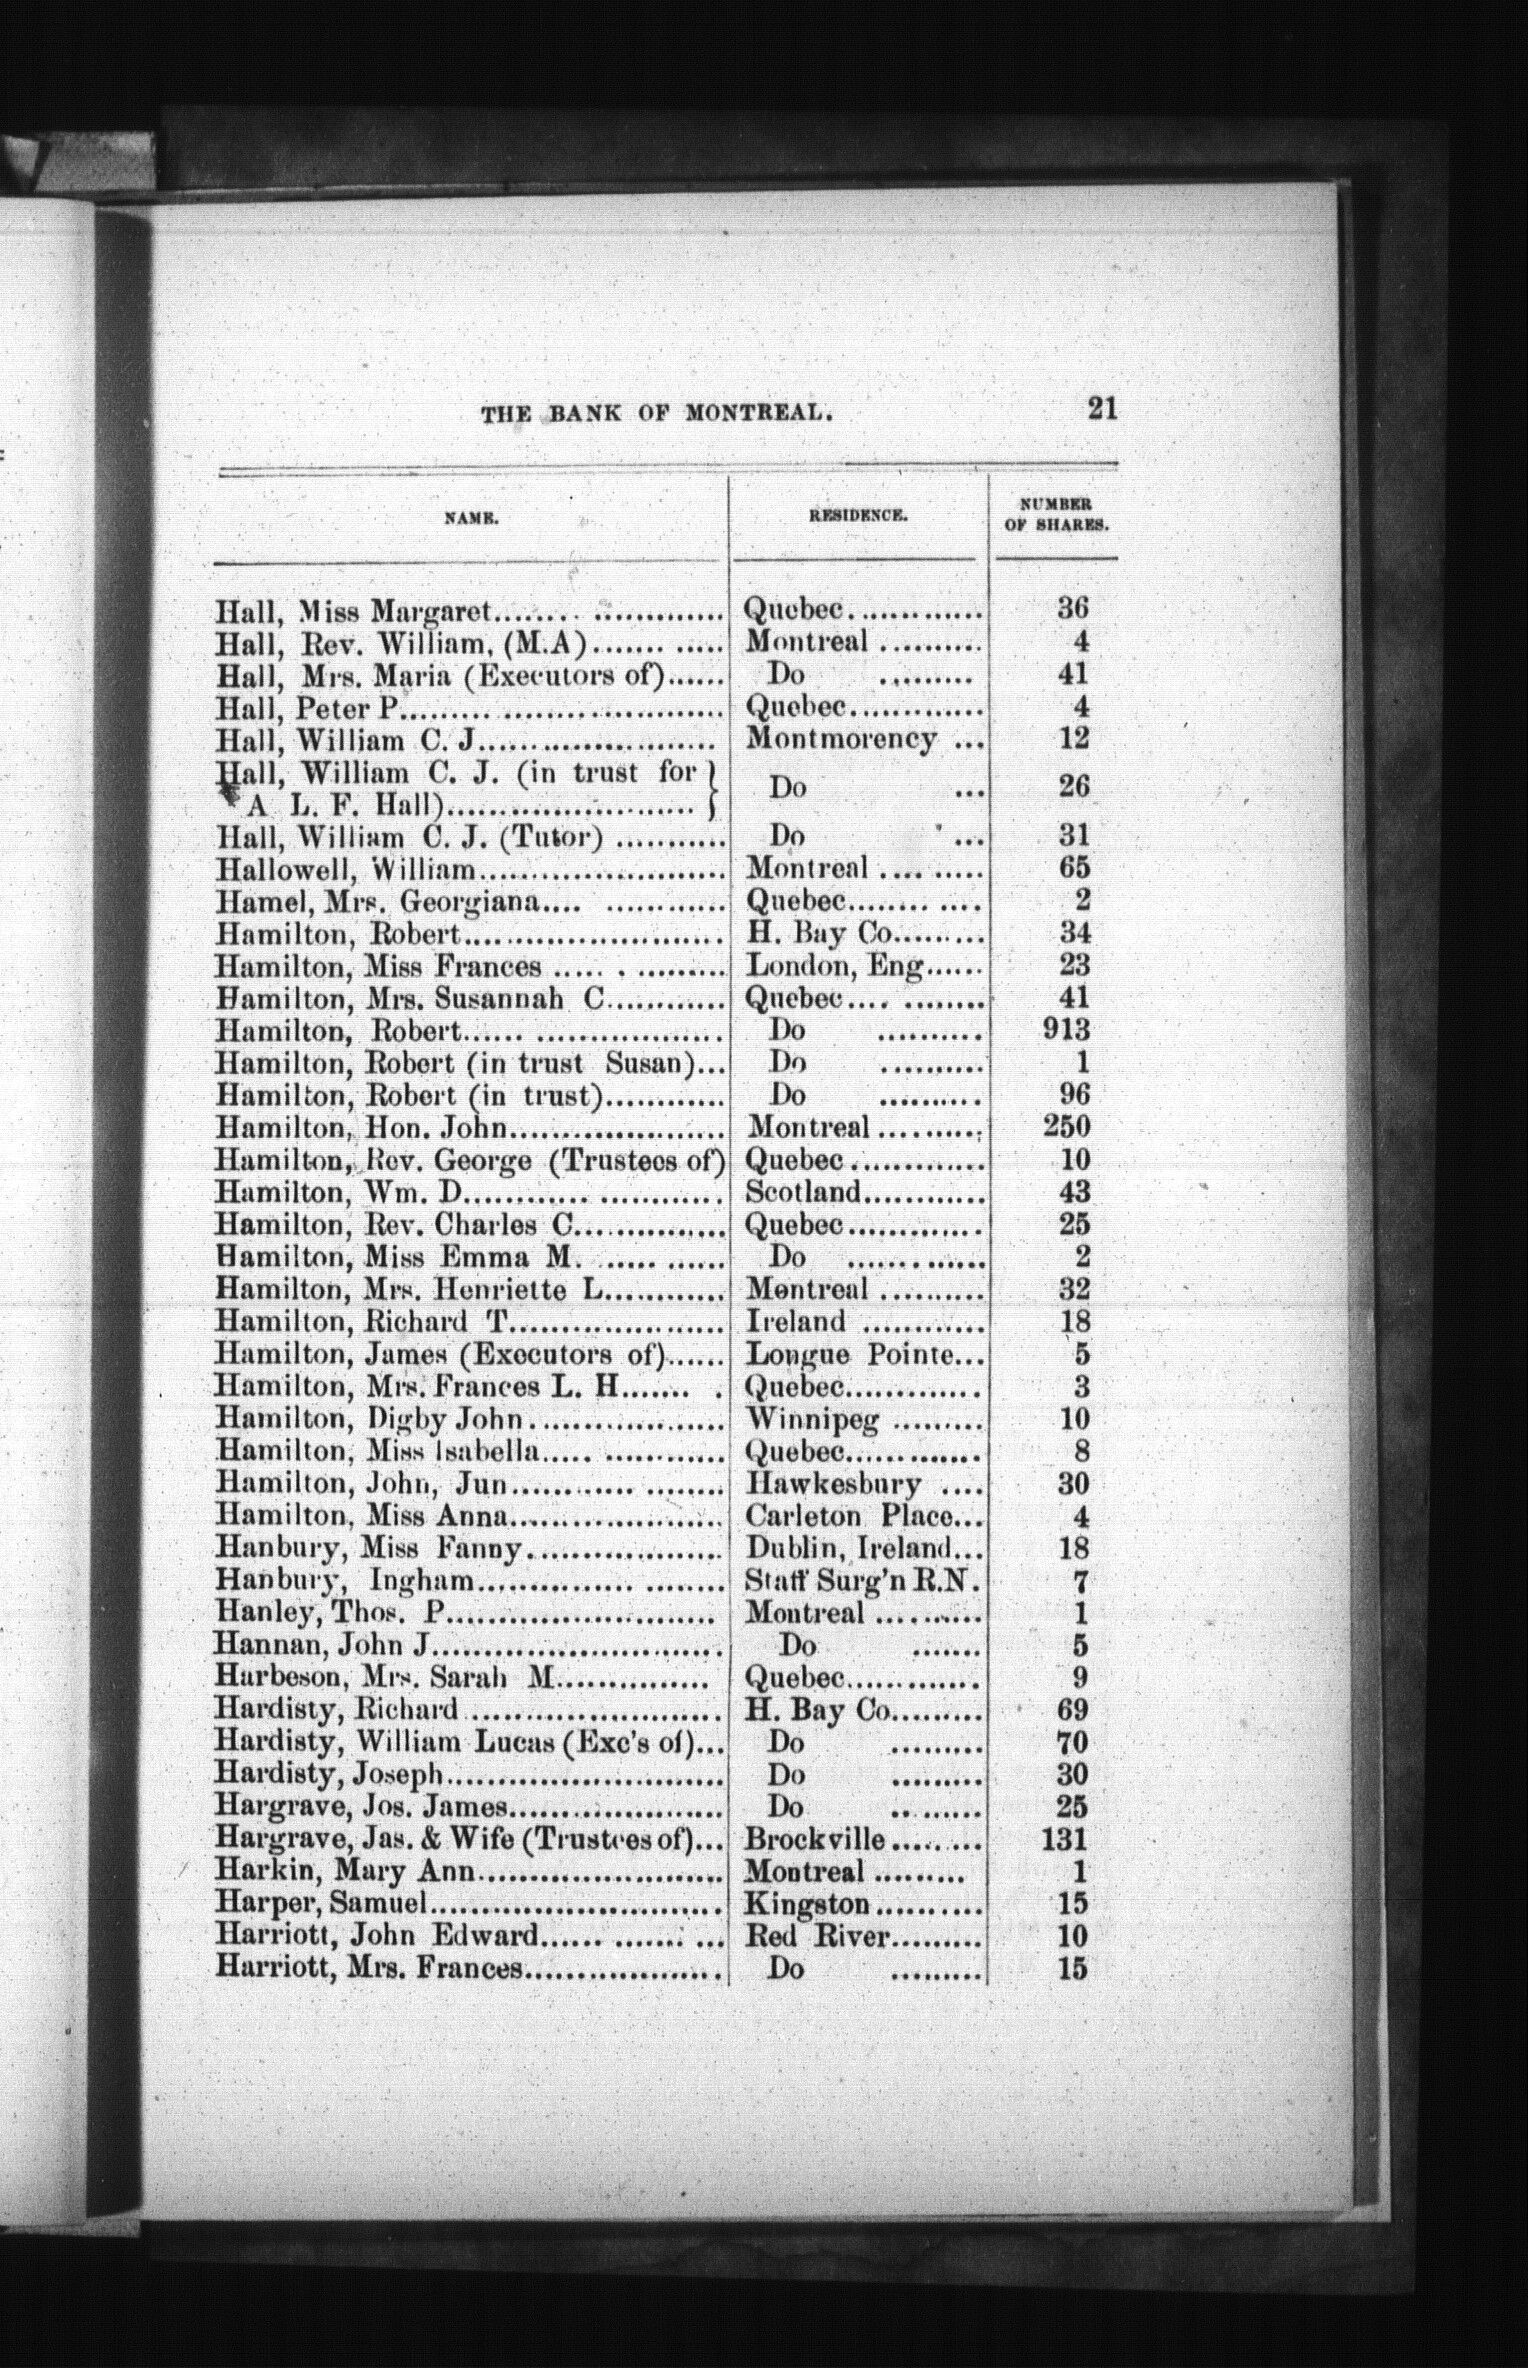 THE BANK OF MONTREAL. 21
NAME. RESIDENCE. NUMBER OF SHARES.
Hall, Miss Margaret........ ............. Quebec............. 36
Hall, Rev. William, (M.A)....... ..... Montreal .......... 4
Hall, Mrs. Maria (Executors of)...... Do ......... 41
Hall, Peter P......... ...................... Quebec............. 4
Hall, William C. J....................... Montmorency ... 12
Hall, William C. J. (in trust for }
A L. F. Hall)........................ } Do ... 26
Hall, William C. J. (Tutor) ........... Do ... 31
Hallowell, William........................ Montreal .... ..... 65
Hamel, Mrs. Georgiana.... ............ Quebec........ .... 2
Hamilton, Robert......................... H. Bay Co......... 34
Hamilton, Miss Frances ..... . ......... London, Eng...... 23
Hamilton, Mrs. Susannah C............ Quebec.... ........ 41
Hamilton, Robert...... .................. Do .......... 913
Hamilton, Robert (in trust Susan)... Do .......... 1
Hamilton, Robert (in trust)............ Do .......... 96
Hamilton, Hon. John..................... Montreal .......... 250
Hamilton, Rev. George (Trustees of) Quebec ............. 10
Hamilton, Wm. D............ ............ Scotland............ 43
Hamilton, Rev. Charles C............... Quebec............. 25
Hamilton, Miss Emma M. ...... ...... Do .............. 2
Hamilton, Mrs. Henriette L............ Montreal .......... 32
Hamilton, Richard T..................... Ireland ............ 18
Hamilton, James (Executors of)...... Longue Pointe... 5
Hamilton, Mrs. Frances L. H....... . Quebec............. 3
Hamilton, Digby John................... Winnipeg ......... 10
Hamilton, Miss Isabella..... ............ Quebec............. 8
Hamilton, John, Jun............ ........ Hawkesbury .... 30
Hamilton, Miss Anna..................... Carleton Place... 4
Hanbury, Miss Fanny................... Dublin, Ireland... 18
Hanbury, Ingham............... ........ Staff Surg'n R.N. 7
Hanley, Thos. P.......................... Montreal .......... 1
Hannan, John J............................ Do ....... 5
Harbeson, Mrs. Sarah M............... Quebec............. 9
Hardisty, Richard ........................ H. Bay Co......... 69
Hardisty, William Lucas (Exc's of)... Do ......... 70
Hardisty, Joseph........................... Do ......... 30
Hargrave, Jos. James..................... Do ......... 25
Hargrave, Jas. & Wife (Trustees of)... Brockville ......... 131
Harkin, Mary Ann........................ Montreal ......... 1
Harper, Samuel............................ Kingston .......... 15
Harriott, John Edward...... ....... ... Red River......... 10
Harriott, Mrs. Frances................... Do ......... 15